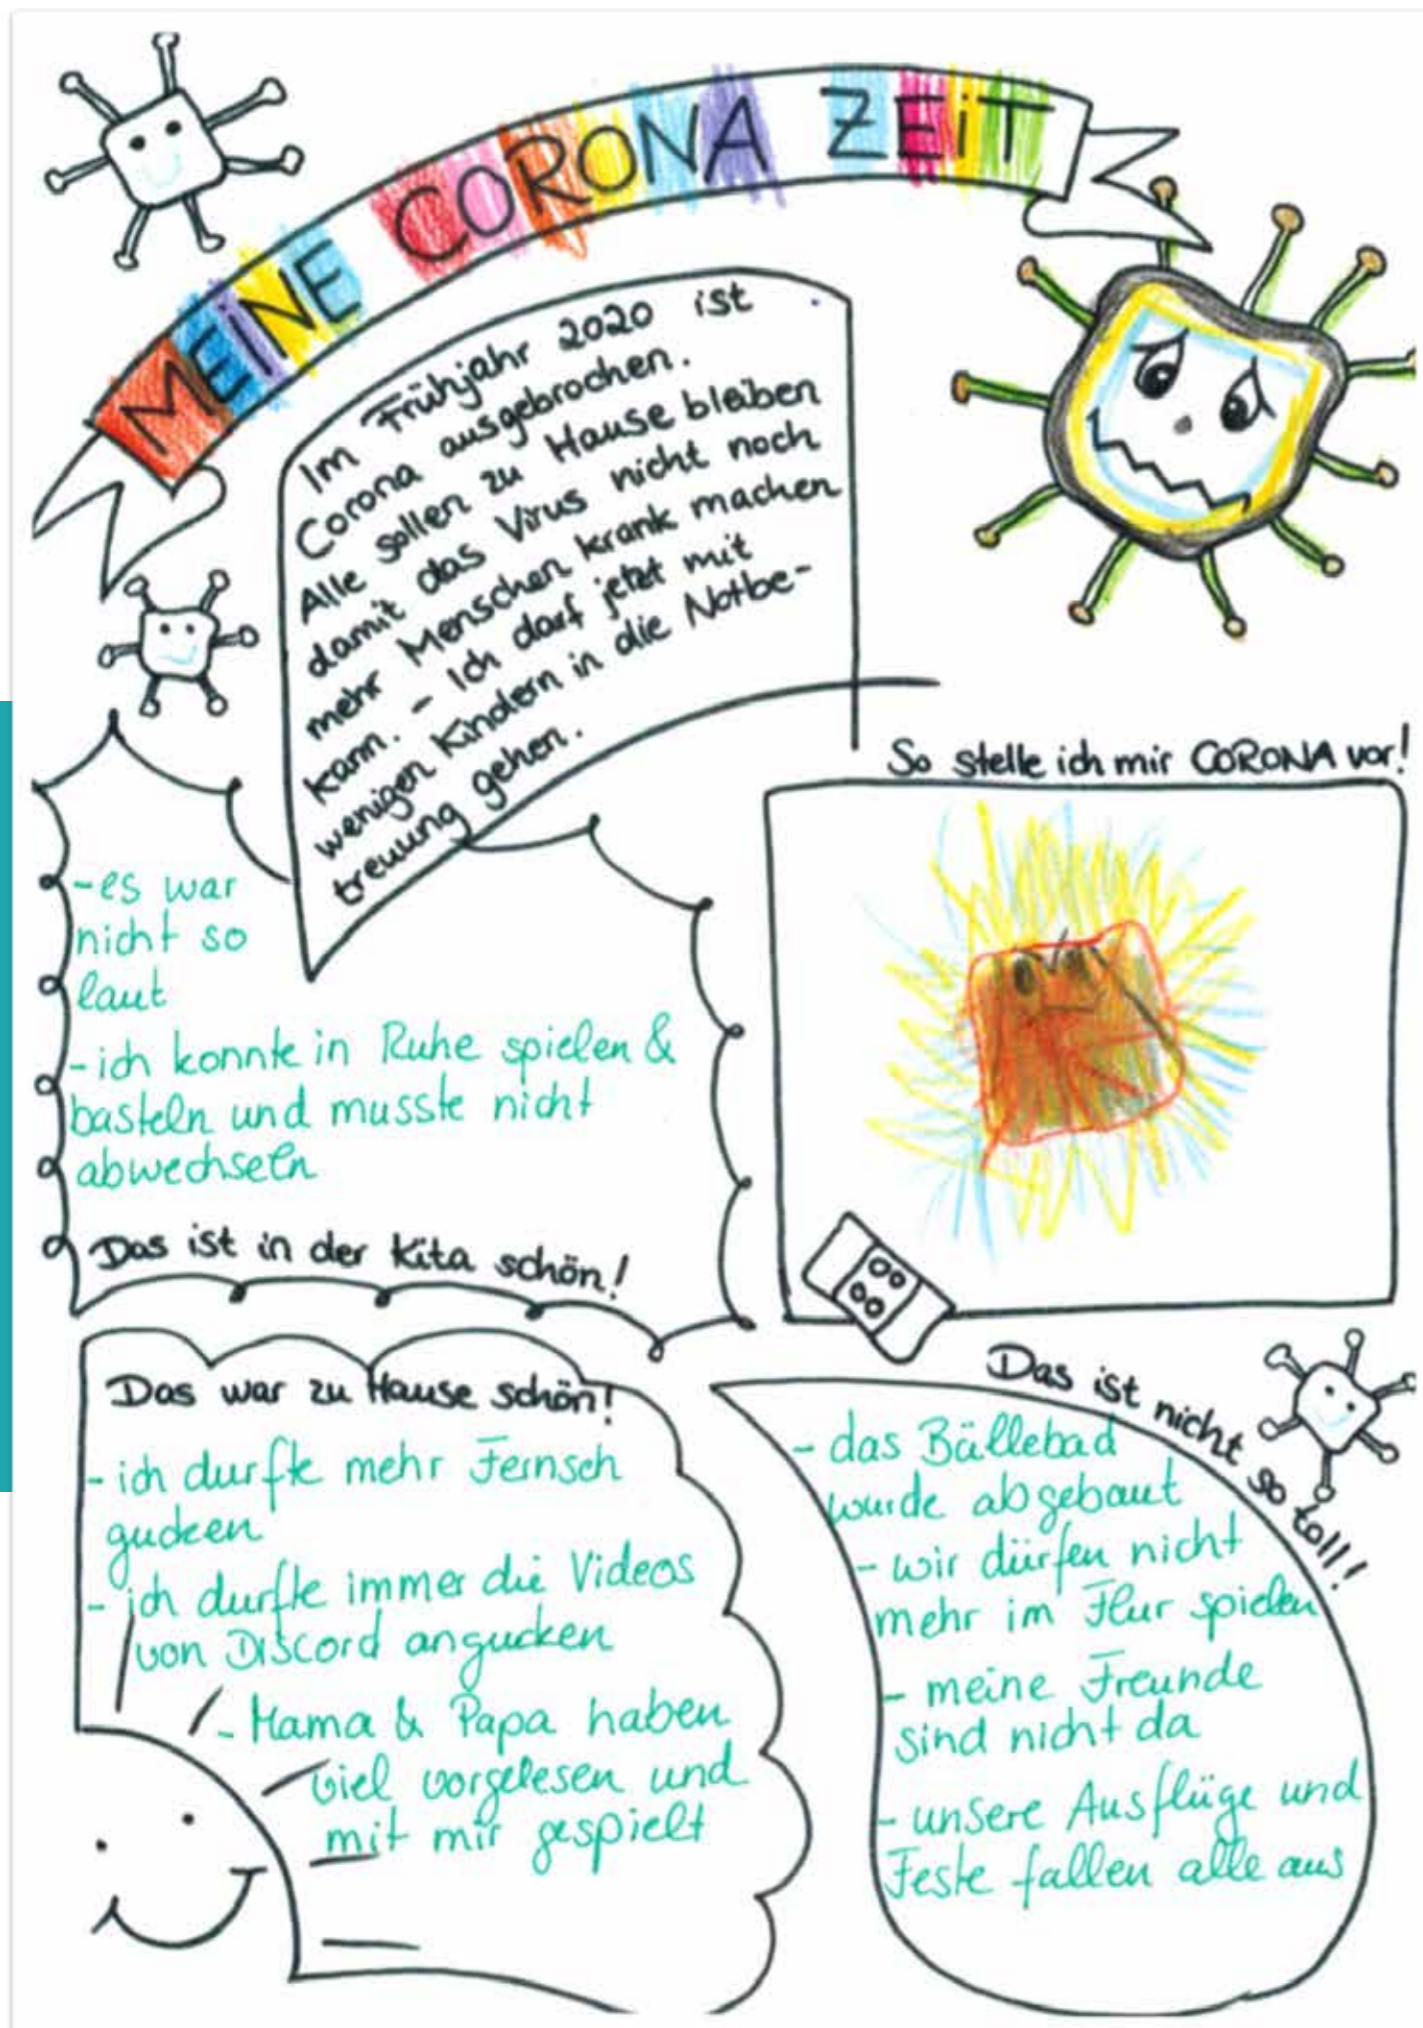 MEINE CORONA ZEIT
Im Frühjahr 2020 ist
Corona ausgebrochen.
Alle sollen zu Hause bleiben
damit das Virus nicht noch
mehr Menschen krank machen
kann. - Ich darf jetzt mit
wenigen Kindern in die Notbe-
treuung gehen.
So stelle ich mir CORONA vor!
- es war
nicht so
laut
- ich konnte in Ruhe spielen &
basteln und musste nicht
abwechseln
Das ist in der Kita schön!
Das war zu Hause schön!
- ich durfte mehr Fernseh
gucken
- ich durfte immer die Videos
von Discord angucken
- Mama & Papa haben
viel vorgelesen und
mit mir gespielt
Das ist nicht so toll!
- das Bällebad
wurde abgebaut
- wir dürfen nicht
mehr im Flur spielen
- meine Freunde
sind nicht da
- unsere Ausflüge und
Feste fallen alle aus